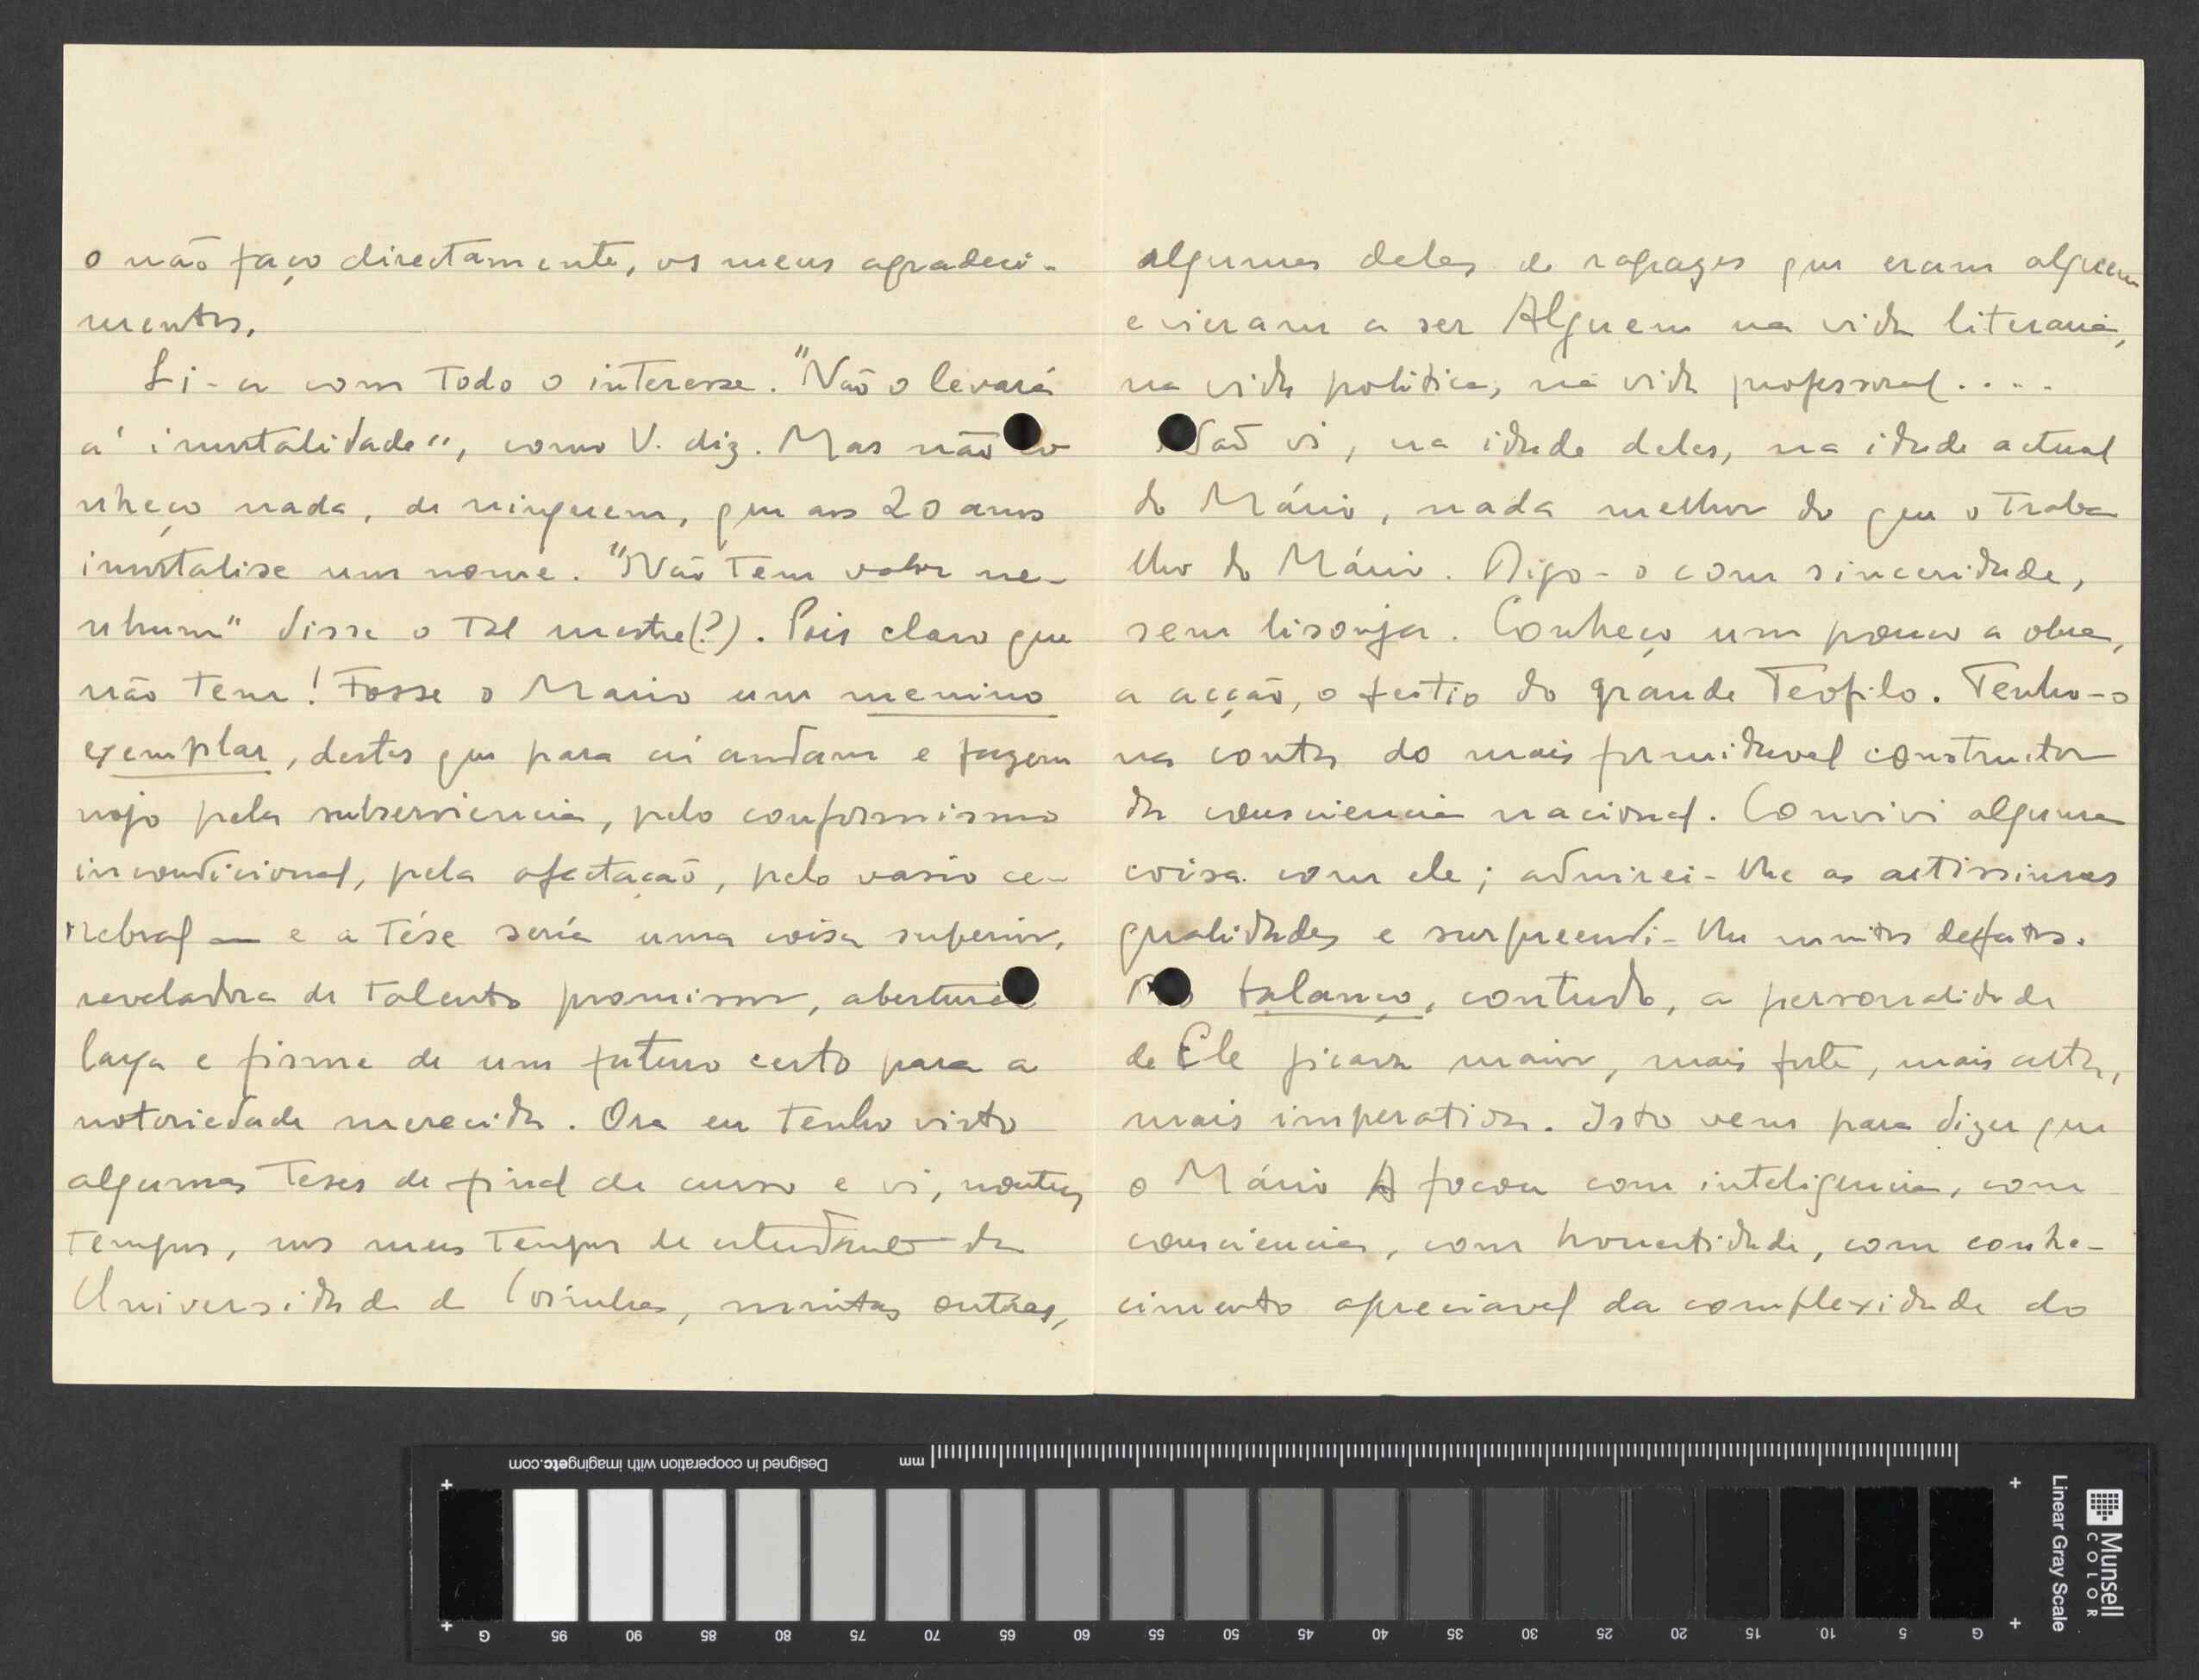 o não faço directamente, os meus agradeci-
mentos.
Li-a com todo o interesse. "Não o levará
á imortalidade", como V. diz. Mas não co
nheço nada, de ninguem, que aos 20 anos
imortalise um nome. "Não tem valor ne-
nhum" disse o tal mestre(?). Pois claro que
não tem! Fosse o Mario um menino
exemplar, destes que para aí andam e fazem
nojo pela subserviencia, pelo conformismo
incondicional, pela afectação, pelo vasio ce-
rebral — e a tése seria uma coisa superior,
reveladora de talento promissor, abertura
larga e firme de um futuro certo para a
notoriedade merecida. Ora eu tenho visto
algumas teses de final de curso e vi, noutros
tempos, nos meus tempos de estudante da
Universidade de Coimbra, muitas outras,
algumas delas de rapazes que eram alguem
e vieram a ser Alguem na vida literaria,
na vida politica, na vida professoral....
Não vi, na idade deles, na idade actual
do Mário, nada melhor do que o traba
lho do Mário. Digo-o com sinceridade,
sem lisonja. Conheço um pouco a obra,
a acção, o feitio do grande Teofilo. Tenho-o
na conta do mais formidavel constructor
da consciencia nacional. Convivi alguma
coisa com ele; admirei-lhe as altissimas
qualidades e surpreendi-lhe muitos defeitos.
No balanço, contudo, a personalidade
de Ele ficava maior, mais forte, mais alta,
mais imperativa. Isto vem para dizer que
o Mário A focou com inteligencia, com
consciencia, com honestidade, com conhe-
cimento apreciavel da complexidade do
Designed in cooperation with imagingetc.com
mm
Munsell
COLOR
Linear Gray Scale
G 95 90 85 80 75 70 65 60 55 50 45 40 35 30 25 20 15 10 5 G